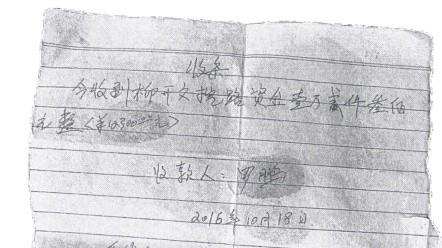 收条
今收到柳开文挖路资金壹万贰仟叁佰
元整(¥12300元)
收款人:罗鹏
2016年10月18日